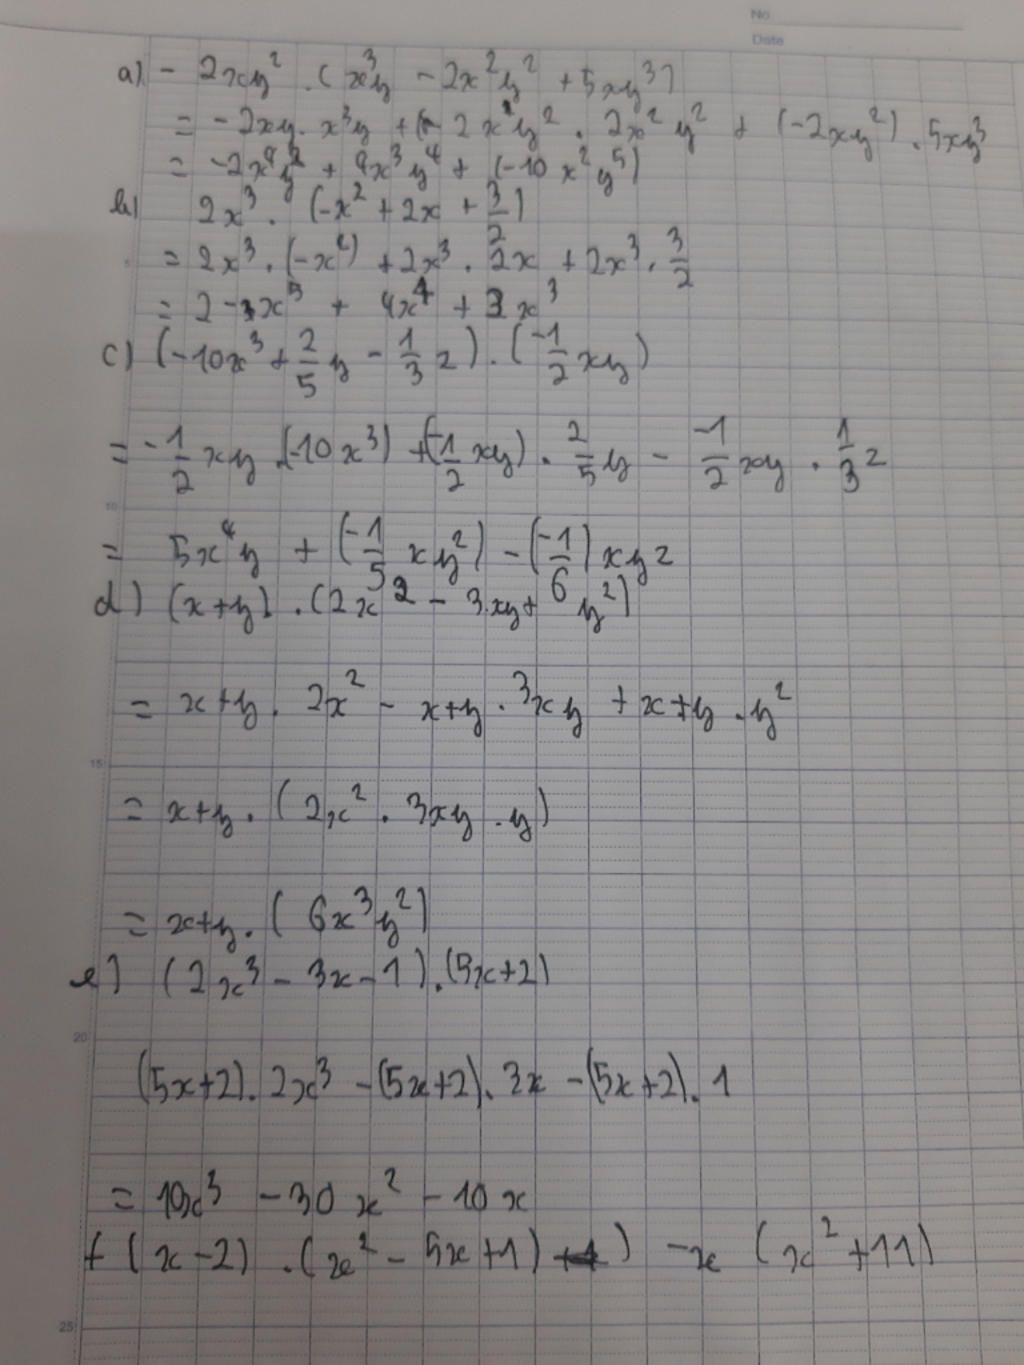 No
Date
a) - 2xy² . (x³y - 2x²y² + 5xy³)
= -2xy . x³y + (- 2x y² . 2x² y² + (-2xy²) . 5xy³
= -2x⁴y² + 4x³y⁴ + (-10 x² y⁵)
b) 2x³ . (-x² + 2x + 3/2)
5 = 2x³ . (-x²) + 2x³ . 2x + 2x³ . 3/2
= 2 - x⁵ + 4x⁴ + 3 x³
c) (-10x³ + 2/5 y - 1/3 z) . (-1/2 xy)
= -1/2 xy (-10x³) + (-1/2 xy) . 2/5 y - -1/2 xy . 1/3 z
10
= 5x⁴y + (-1/5 xy²) - (-1/6) xyz
d) (x+y) . (2x² - 3xy + y²)
= x+y . 2x² - x+y . 3xy + x+y . y²
15
= x+y . (2x² . 3xy . y)
= x+y . (6x³y²)
e) (2x³ - 3x - 1) . (5x+2)
20
(5x+2) . 2x³ - (5x+2) . 3x - (5x+2) . 1
= 10x³ - 30x² - 10x
f (x-2) . (x² - 5x+1) ) -x (x²+11)
25